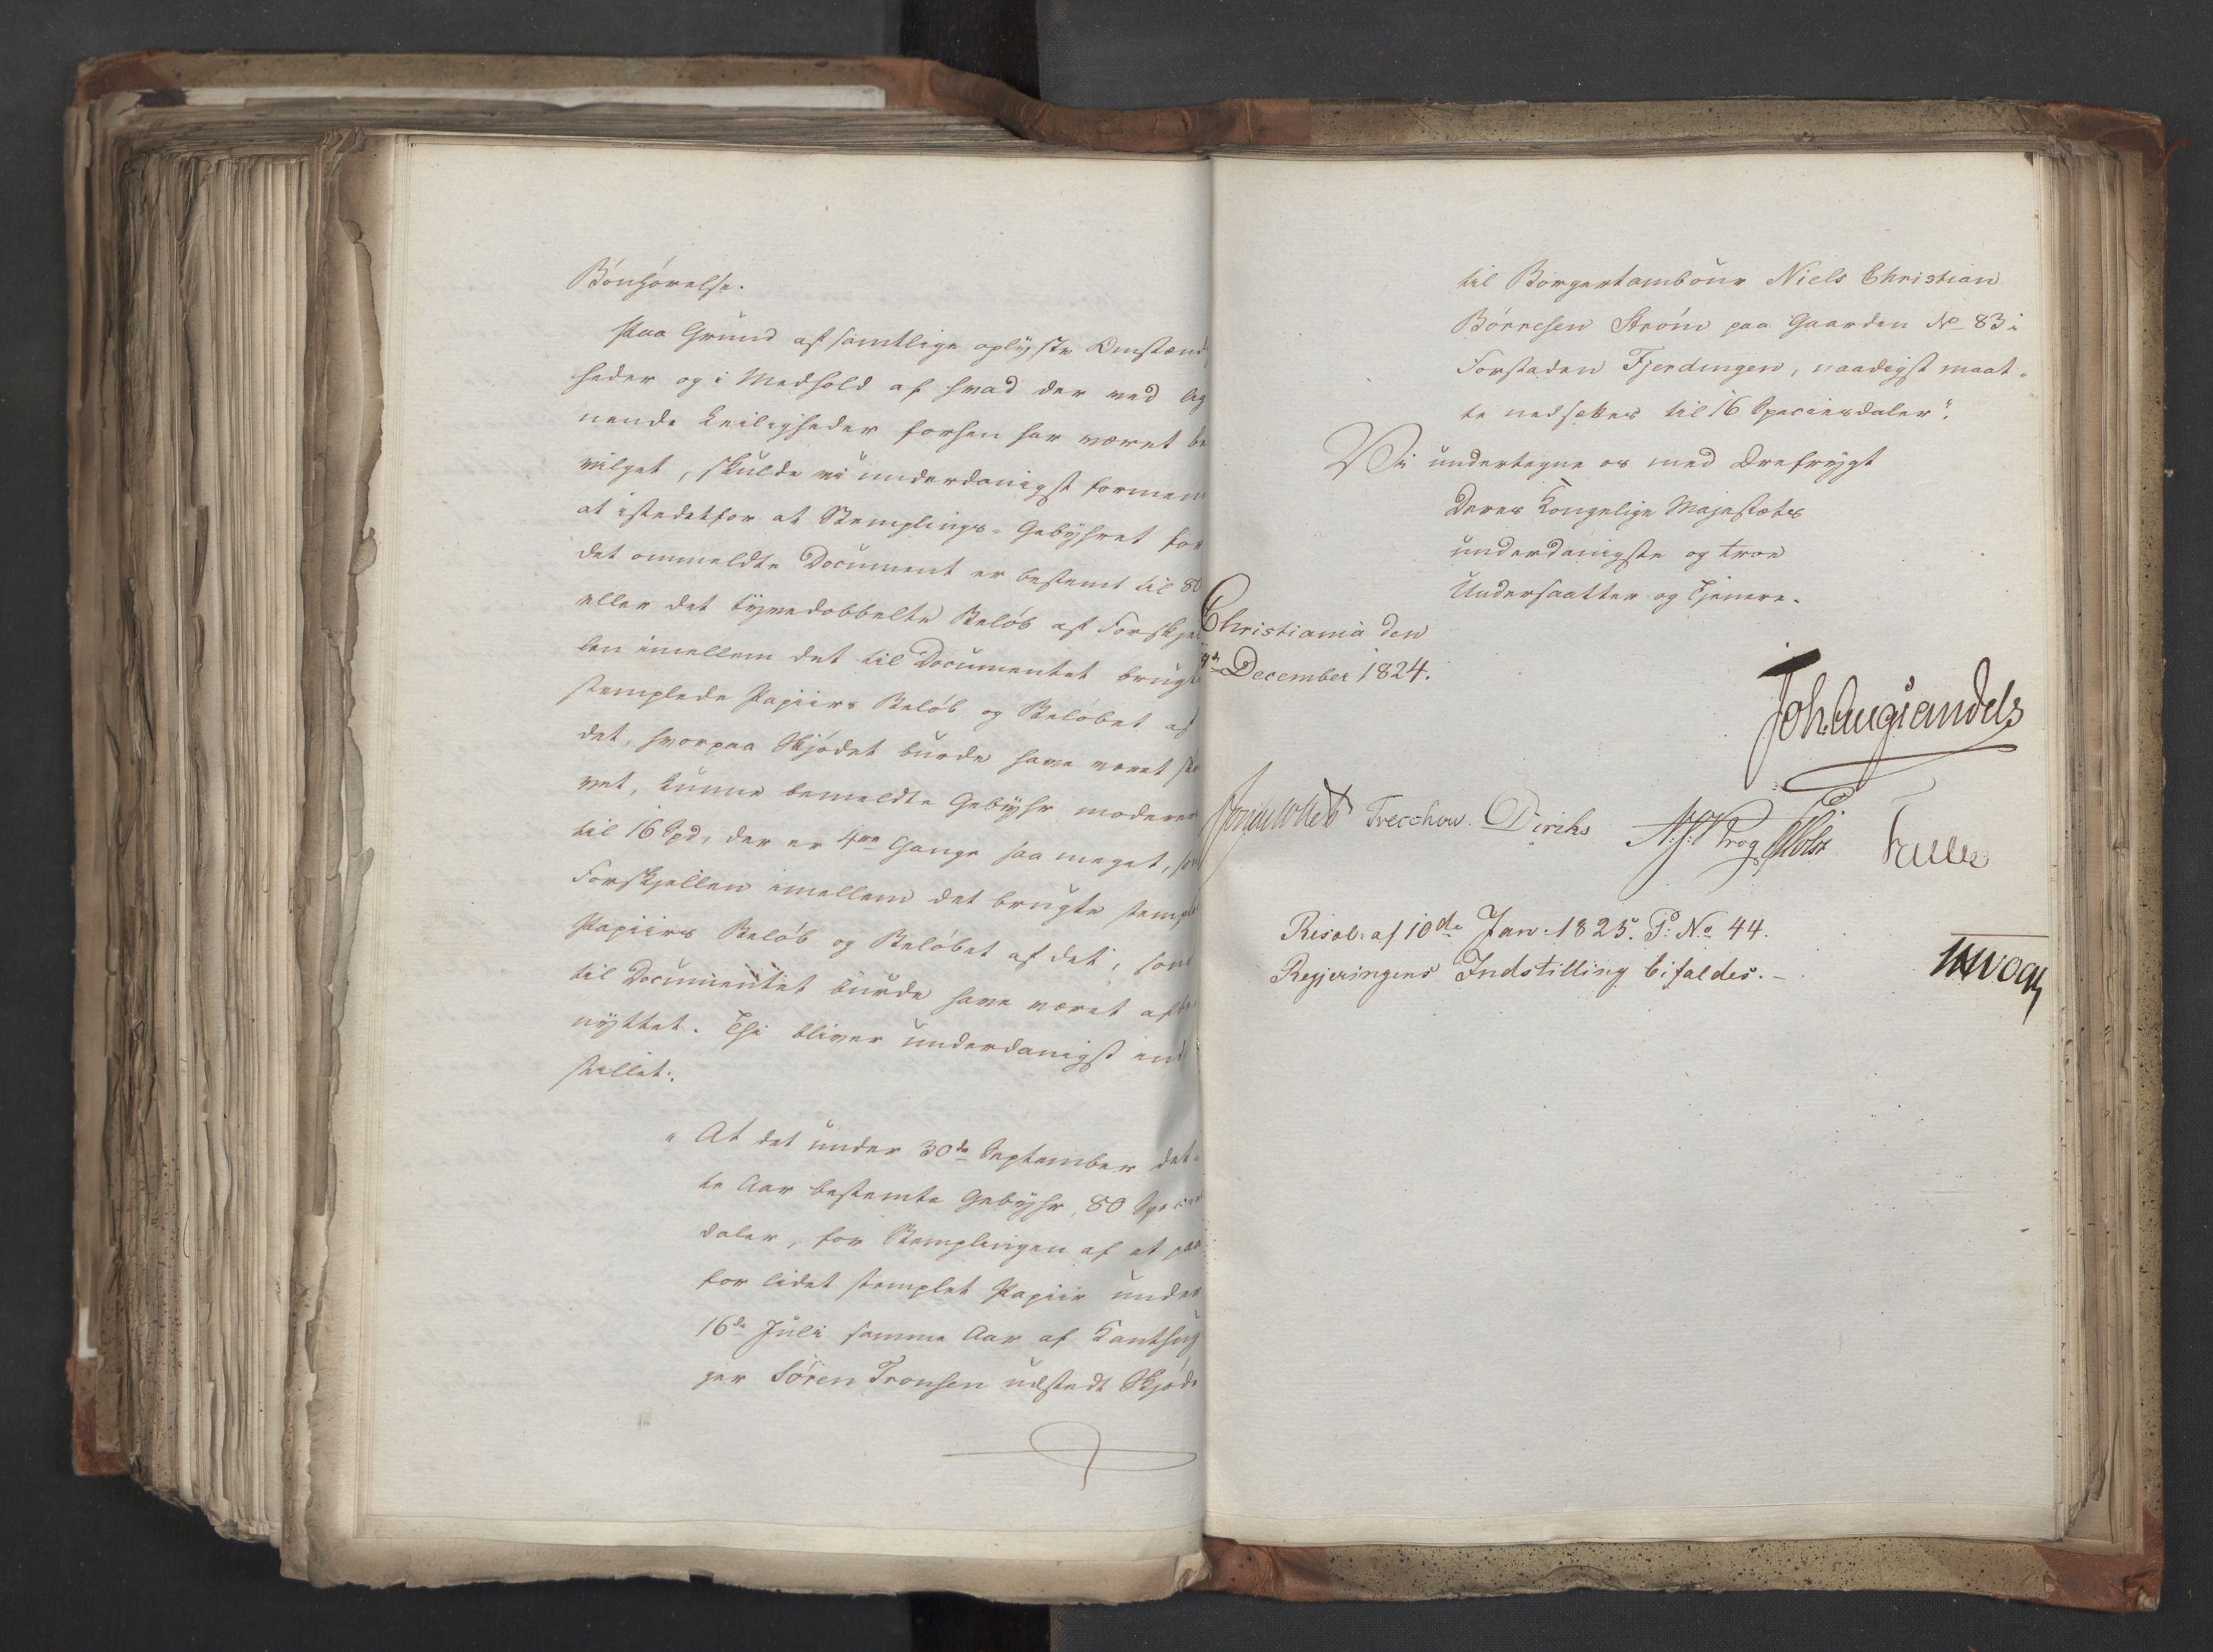 Bønhørelse.
Paa Grund af samtlige oplyste Omstænd
heder og i Medhold af hvad der ved lig
nende Leiligheder forhen har været be
vilget, skulde vi underdanigst formene
at istedetfor at Stemplings-Gebyhret for
det ommeldte Document er bestemt til 80
eller det tyvedobbelte Beløb af Forskjel
len imellem det til Documentet brugte
stemplede Papiirs Beløb og Beløbet af
det, hvorpaa Skjødet burde have været skre
vet, kunne bemeldte Gebyhr moderer
til 16 Spd, der er 4re Gange saa meget, som
Forskjellen imellem det brugte stemple
Papiirs Beløb og Beløbet af det, som
til Documentet burde have været afbe
nyttet. Thi bliver underdanigst ind
stillet:
"At det under 30de September det-
te Aar bestemte Gebyhr, 80 Species
daler, for Stemplingen af et paa
for lidet stemplet Papiir under
16de Juli samme Aar af Kanthug
ger Søren Tronsen udstedt Skjøde
til Borgertambour Niels Christian
Børresen Strøm paa Gaarden No 83 i
Forstaden Fjerdingen, naadigst maat-
te nedsættes til 16 Speciesdaler".
Vi undertegne os med Ærefrygt
Deres Kongelige Majestæts
underdanigste og troe
Undersaatter og Tjenere.
Christiania den
December 1824.
Joh. Aug. Sandels
Treschow Diriks Krog Holst
Resol. af 10de Jan. 1825. P: No 44.
Regjeringens Indstilling bifaldes.-